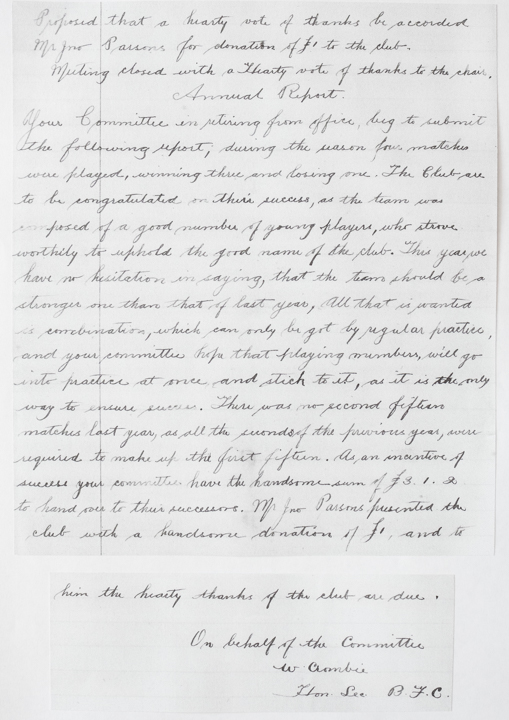 Proposed that a hearty vote of thanks be accorded
Mr Jno Parsons for donation of £1 to the club.
Meeting closed with a Hearty vote of thanks to the chair.
Annual Report.
Your Committee in retiring from office, beg to submit
the following report, during the season four matches
were played, winning three and losing one. The Club are
to be congratulated on their success, as the team was
composed of a good number of young players, who strove
worthily to uphold the good name of the club. This year, we
have no hesitation in saying, that the team should be a
stronger one than that of last year, All that is wanted
is combination, which can only be got by regular practice,
and your committee hope that playing members, will go
into practice at once and stick to it, as it is the only
way to ensure success. There was no second fifteen
matches last year, as all the seconds of the previous year, were
required to make up the first fifteen. As, an incentive of
success your committee have the handsome sum of £3. 1. 2
to hand over to their successors. Mr Jno Parsons presented the
club with a handsome donation of £1, and to
him the hearty thanks of the club are due.
On behalf of the Committee
W. Crombie
Hon. Sec B.F.C.